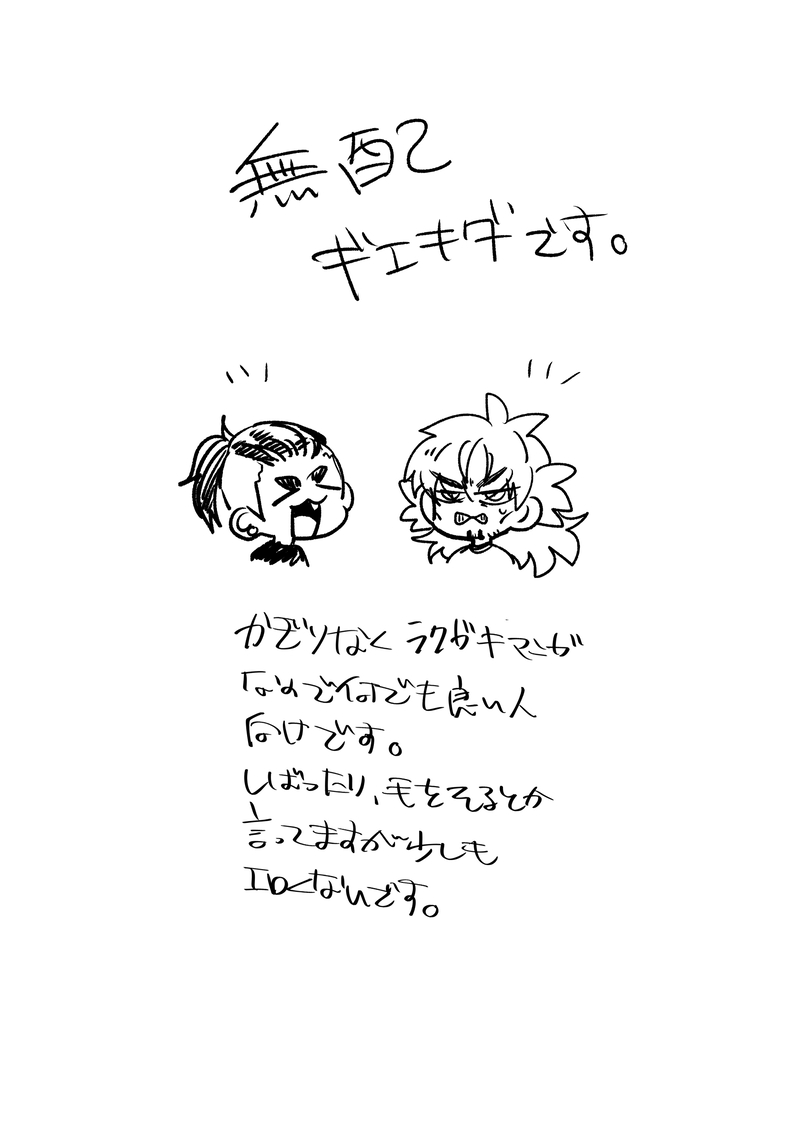 無配
ギエキダです。
かぎりなくラクガキマンガ
なので何でも良い人
向けです。
しばったり、毛をそるとか
言ってますが少しも
エロくないです。